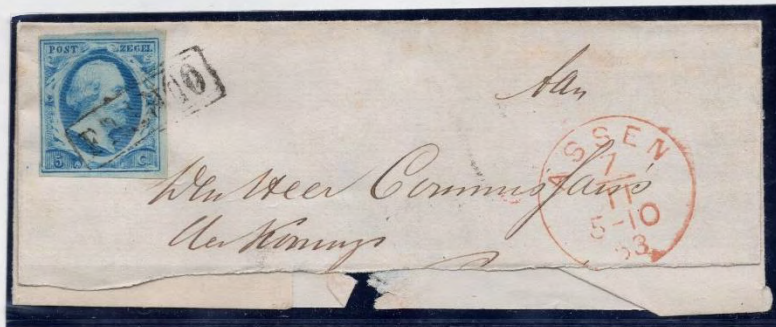 POST ZEGEL
5 C
FRANCO
Aan
ASSEN
7
11
5-10
53
Den Heer Commissaris
des Konings